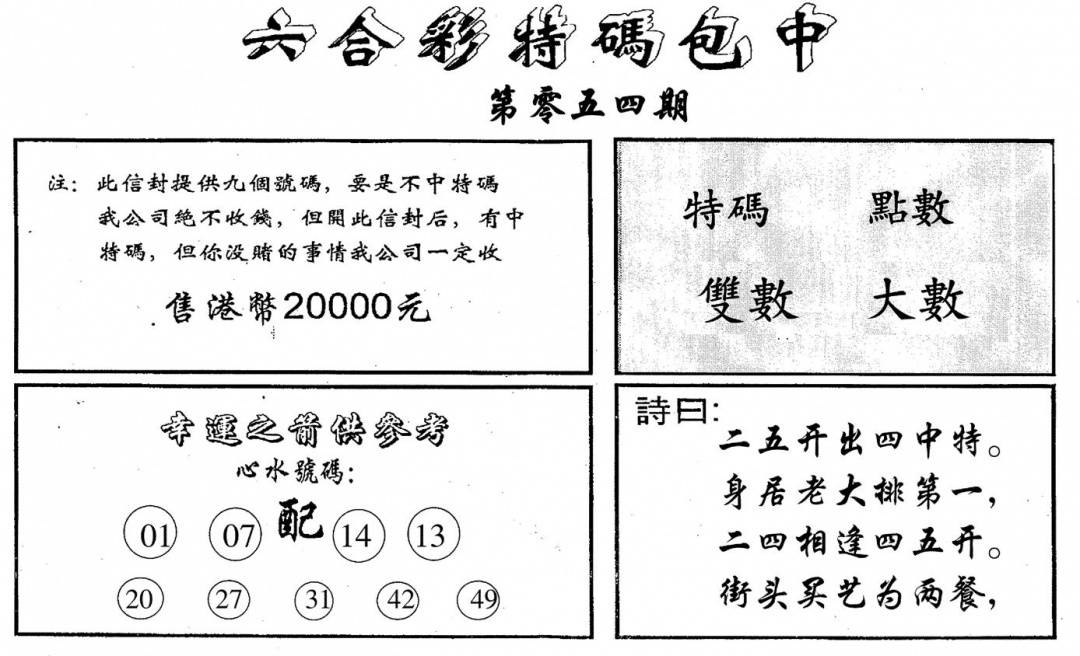 六合彩特碼包中
第零五四期
注：此信封提供九個號碼，要是不中特碼
我公司絕不收錢，但開此信封后，有中
特碼，但你没賭的事情我公司一定收
售港幣20000元
特碼 點數
雙數 大數
幸運之箭供參考
心水號碼：
配
01 07 14 13
20 27 31 42 49
詩曰：
二五开出四中特。
身居老大排第一，
二四相逢四五开。
街头买艺为两餐，